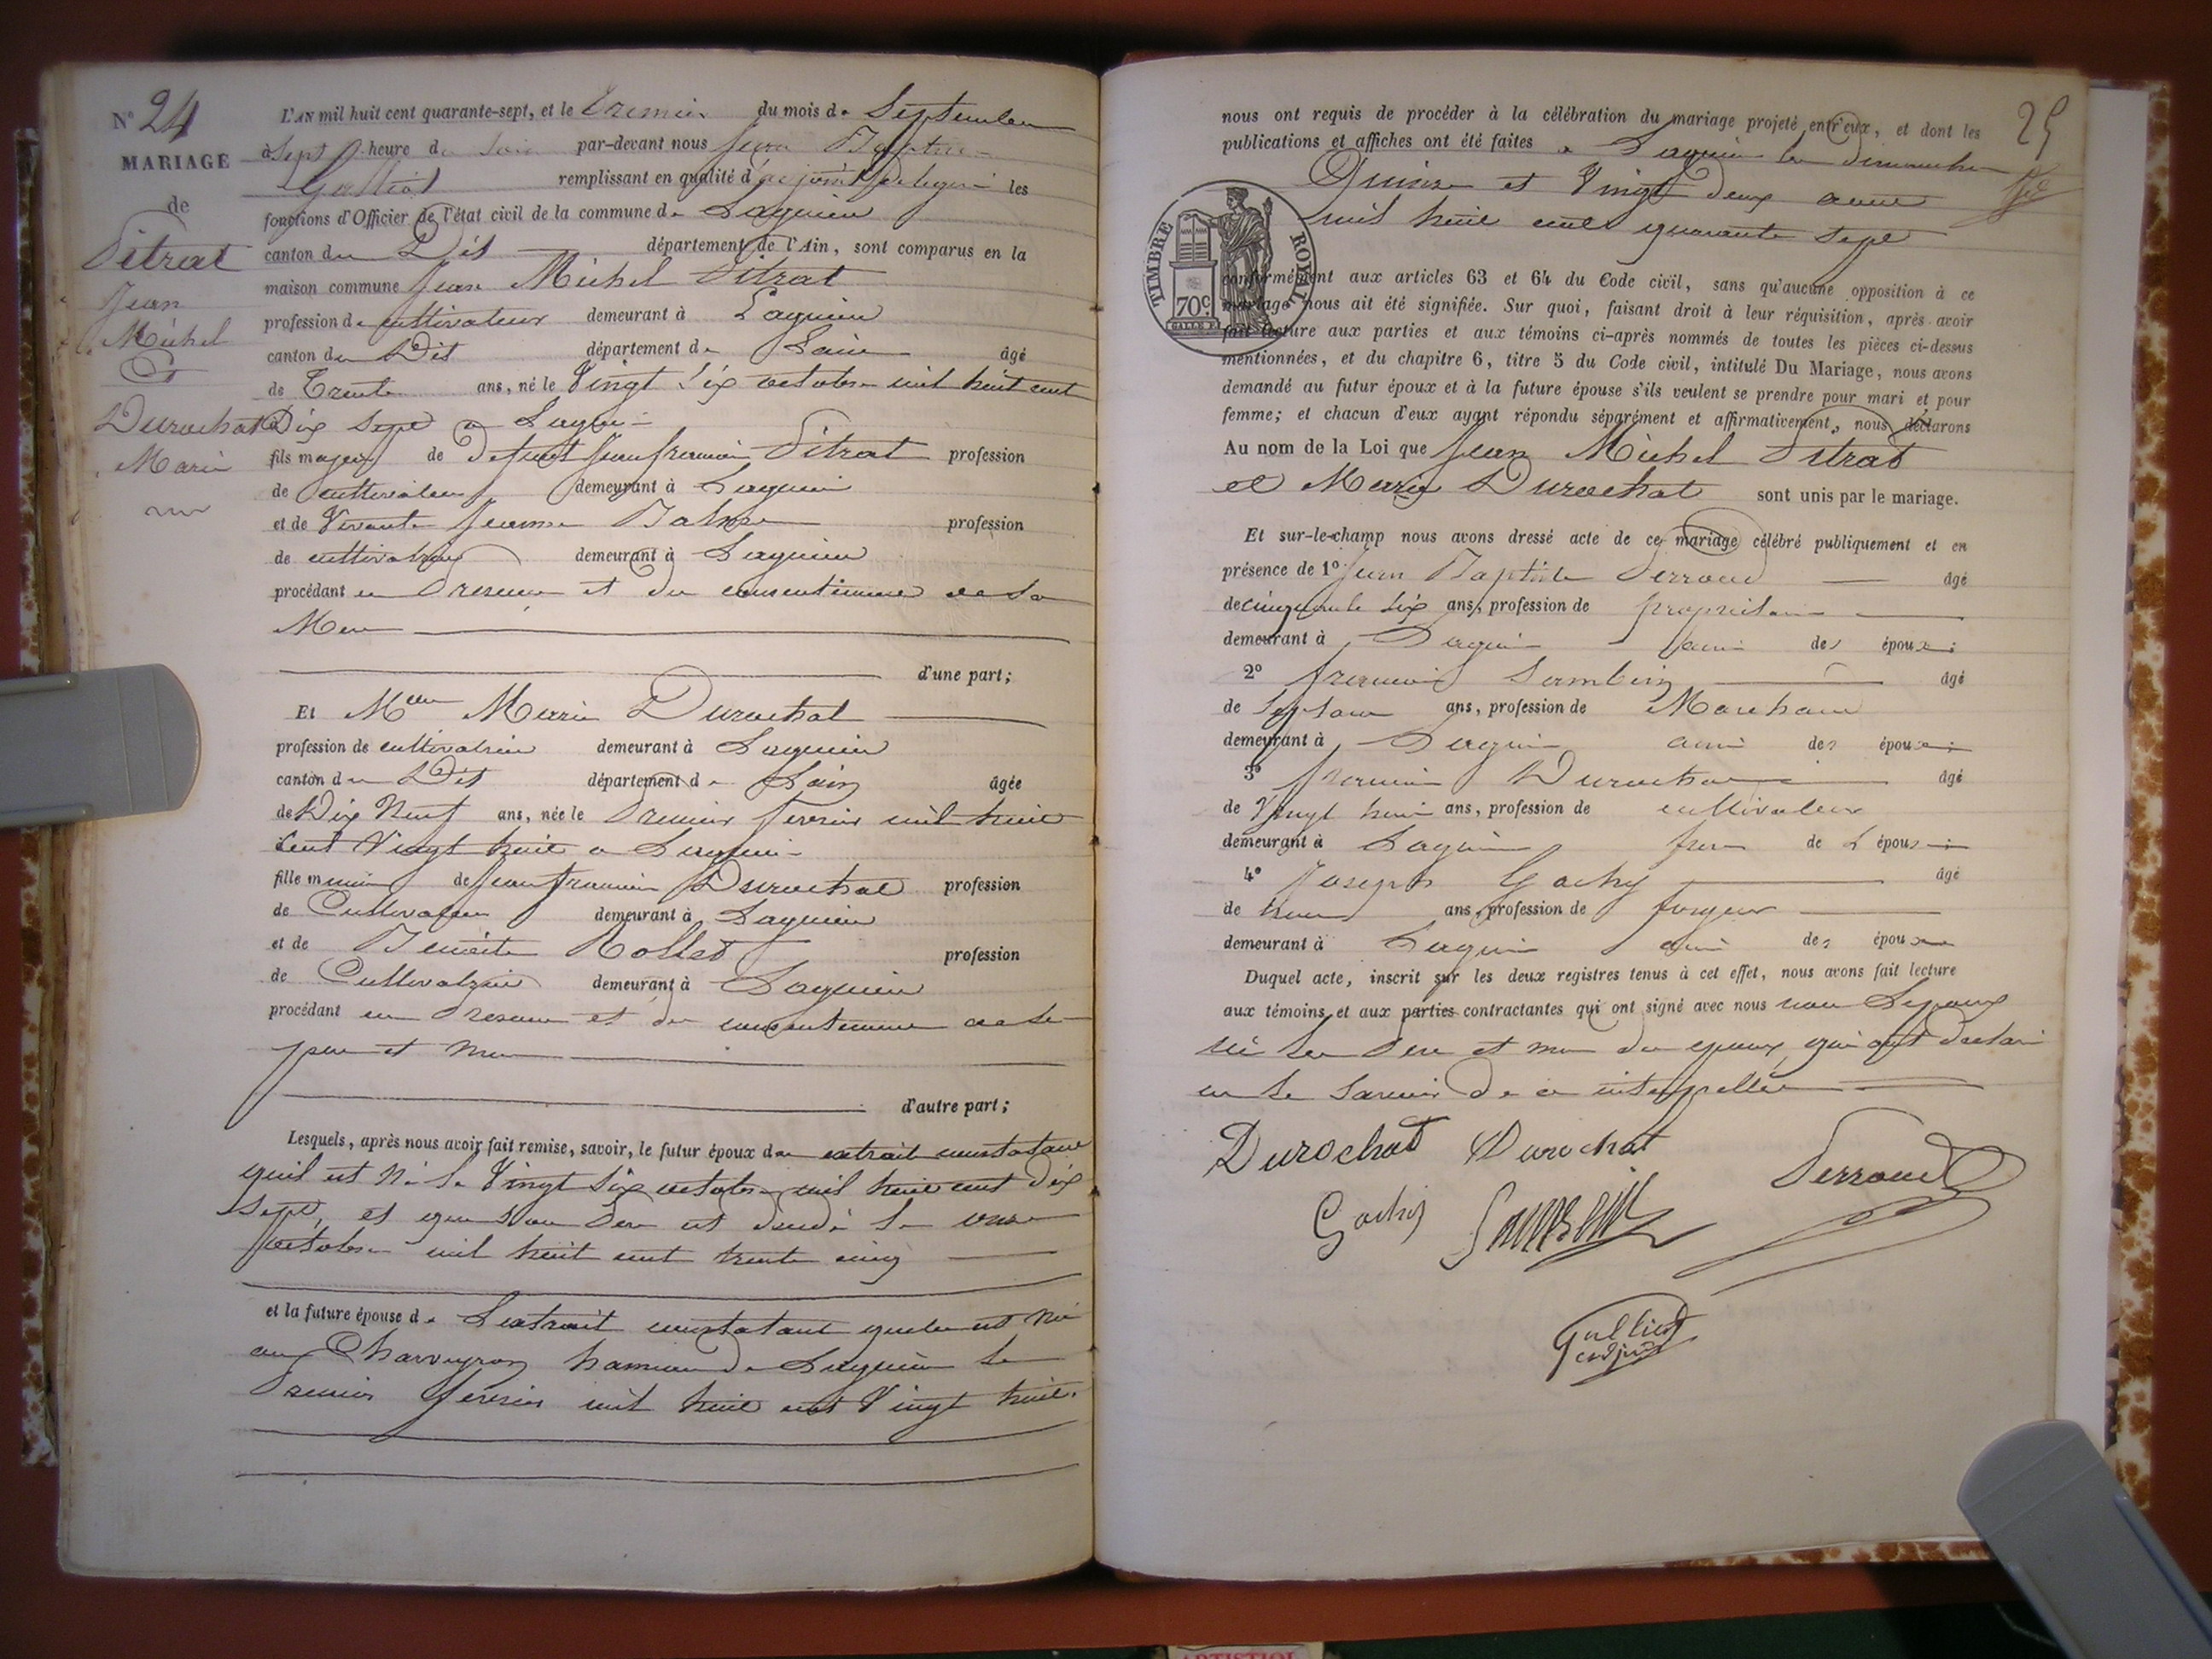 N° 24
MARIAGE
de
Pitrat
Jean
Michel
Et
Durochat
Marie
L'AN mil huit cent quarante-sept, et le Premier du mois de Septembre
à Sept heure du Soir par-devant nous Jean Baptiste
Galliot remplissant en qualité d'adjoint délégué les
fonctions d'Officier de l'état civil de la commune de Lagnieu
canton du Dit département de l'Ain, sont comparus en la
maison commune Jean Michel Pitrat
profession de cultivateur demeurant à Lagnieu
canton du Dit département de Lain âgé
de Trente ans, né le Vingt Six octobre mil huit cent
Dix Sept a Lagnieu
fils majeur de Defunt Jean francois Pitrat profession
de cultivateur demeurant à Lagnieu
et de Vivante Jeanne Balme profession
de cultivatrice demeurant à Lagnieu
procédant en Presence et du consentement de Sa
Mere
d'une part;
Et Melle Marie Durochat
profession de cultivatrice demeurant à Lagnieu
canton du Dit département de Lain âgée
de Dix Neuf ans, née le Premier fevrier mil huit
Cent Vingt huit a Lagnieu
fille mineure de Jean francois Durochat profession
de Cultivateur demeurant à Lagnieu
et de Benoite Rollet profession
de Cultivatrice demeurant à Lagnieu
procédant en Presence et du consentement de Se
pere et Mere
d'autre part;
Lesquels, après nous avoir fait remise, savoir, le futur époux d'un extrait constatant
quil est Né le Vingt Six octobre mil huit cent Dix
Sept, et que Son Pere est décédé le onze
octobre mil huit cent trente cinq
et la future épouse de Lextrait constatant quelle est Née
au Charveyron hameau de Lagnieu le
Premier fevrier mil huit cent Vingt huit.
25
nous ont requis de procéder à la célébration du mariage projeté entr'eux, et dont les
publications et affiches ont été faites a Lagnieu les dimanche
Quinze et Vingt deux aout
mil huit cent quarante Sept
TIMBRE ROYAL
70c
conformément aux articles 63 et 64 du Code civil, sans qu'aucune opposition à ce
mariage nous ait été signifiée. Sur quoi, faisant droit à leur réquisition, après avoir
fait lecture aux parties et aux témoins ci-après nommés de toutes les pièces ci-dessus
mentionnées, et du chapitre 6, titre 5 du Code civil, intitulé Du Mariage, nous avons
demandé au futur époux et à la future épouse s'ils veulent se prendre pour mari et pour
femme; et chacun d'eux ayant répondu séparément et affirmativement, nous déclarons
Au nom de la Loi que Jean Michel Pitrat
et Marie Durochat sont unis par le mariage.
Et sur-le-champ nous avons dressé acte de ce mariage célébré publiquement et en
présence de 1° Jean Baptiste Perroud âgé
de cinquante Six ans, profession de proprietaire
demeurant à Lagnieu ami des époux;
2° francois Sambin âgé
de ans, profession de Marchand
demeurant à Lagnieu ami des époux;
3° francois Durochat âgé
de Vingt huit ans, profession de cultivateur
demeurant à Lagnieu frere de L épouse;
4° Joseph Gachy âgé
de ans, profession de forgeur
demeurant à Lagnieu ami des époux
Duquel acte, inscrit sur les deux registres tenus à cet effet, nous avons fait lecture
aux témoins et aux parties contractantes qui ont signé avec nous non Lepoux
ni les Pere et mere des epoux qui ont declaré
ne le Savoir de ce interpellés
Durochat Durochat Perroud
Gachy Sambin
Galliot
adjoint